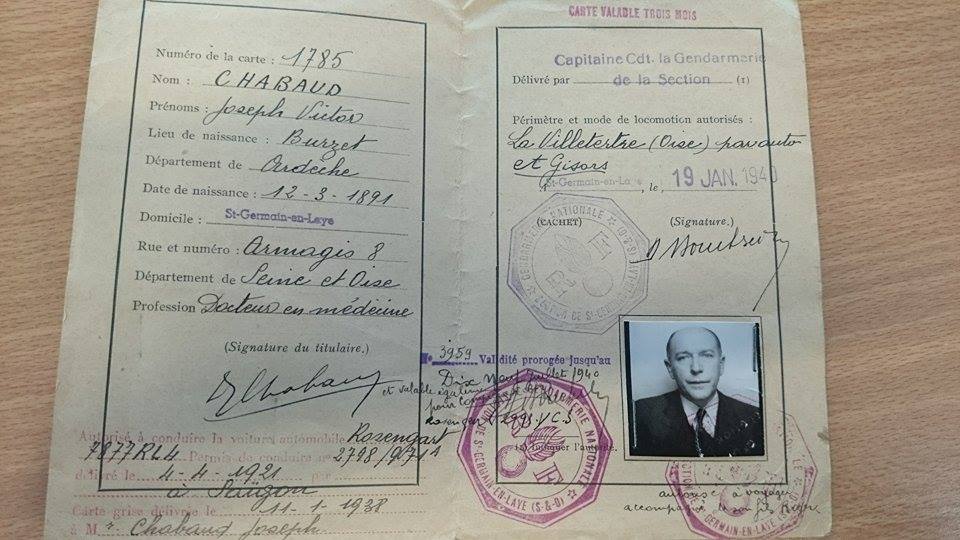 Numéro de la carte : 1785
Nom : CHABAUD
Prénoms : Joseph Victor
Lieu de naissance : Burzet
Département de Ardèche
Date de naissance : 12-3-1891
Domicile : St-Germain-en-Laye
Rue et numéro : Armagis 8
Département de Seine et Oise
Profession Docteur en médecine
(Signature du titulaire.)
Chabaud
Autorisé à conduire la voiture automobile Rosengart
7877RL4 Permis de conduire n°
délivré le 4-4-1921 par
à Saïgon
Carte grise délivrée le 11-1-1938
à M r. Chabaud Joseph
CARTE VALABLE TROIS MOIS
Capitaine Cdt. la Gendarmerie
Délivré par de la Section (1)
Périmètre et mode de locomotion autorisés :
La Villetertre (Oise) par auto
et Gisors
St-Germain-en-Laye, le 19 JAN. 1940
(CACHET) (Signature.)
GENDARMERIE NATIONALE
SECTION DE ST-GERMAIN-EN-LAYE
RF
No 3959 Validité prorogée jusqu'au
Dix Neuf Juillet 1940
et valable
pour
(1) Indiquer l'autorité.
GENDARMERIE NATIONALE
ST-GERMAIN-EN-LAYE (S-&-O)
autorisé à voyager
accompagné de son fils
GERMAIN-EN-LAYE (S-&-O)